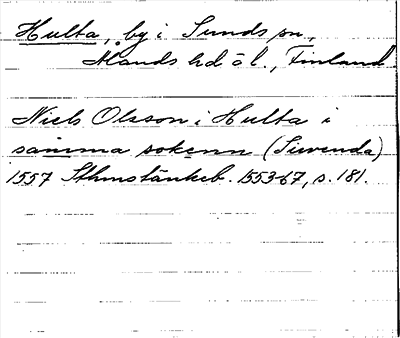 Hulta, by i Sunds sn.,
Ålands hd o l., Finland
Niels Olsson i Hulta i
samma sokenn (Siwenda)
1557 Sthmstänkeb. 1553-67, s. 181.